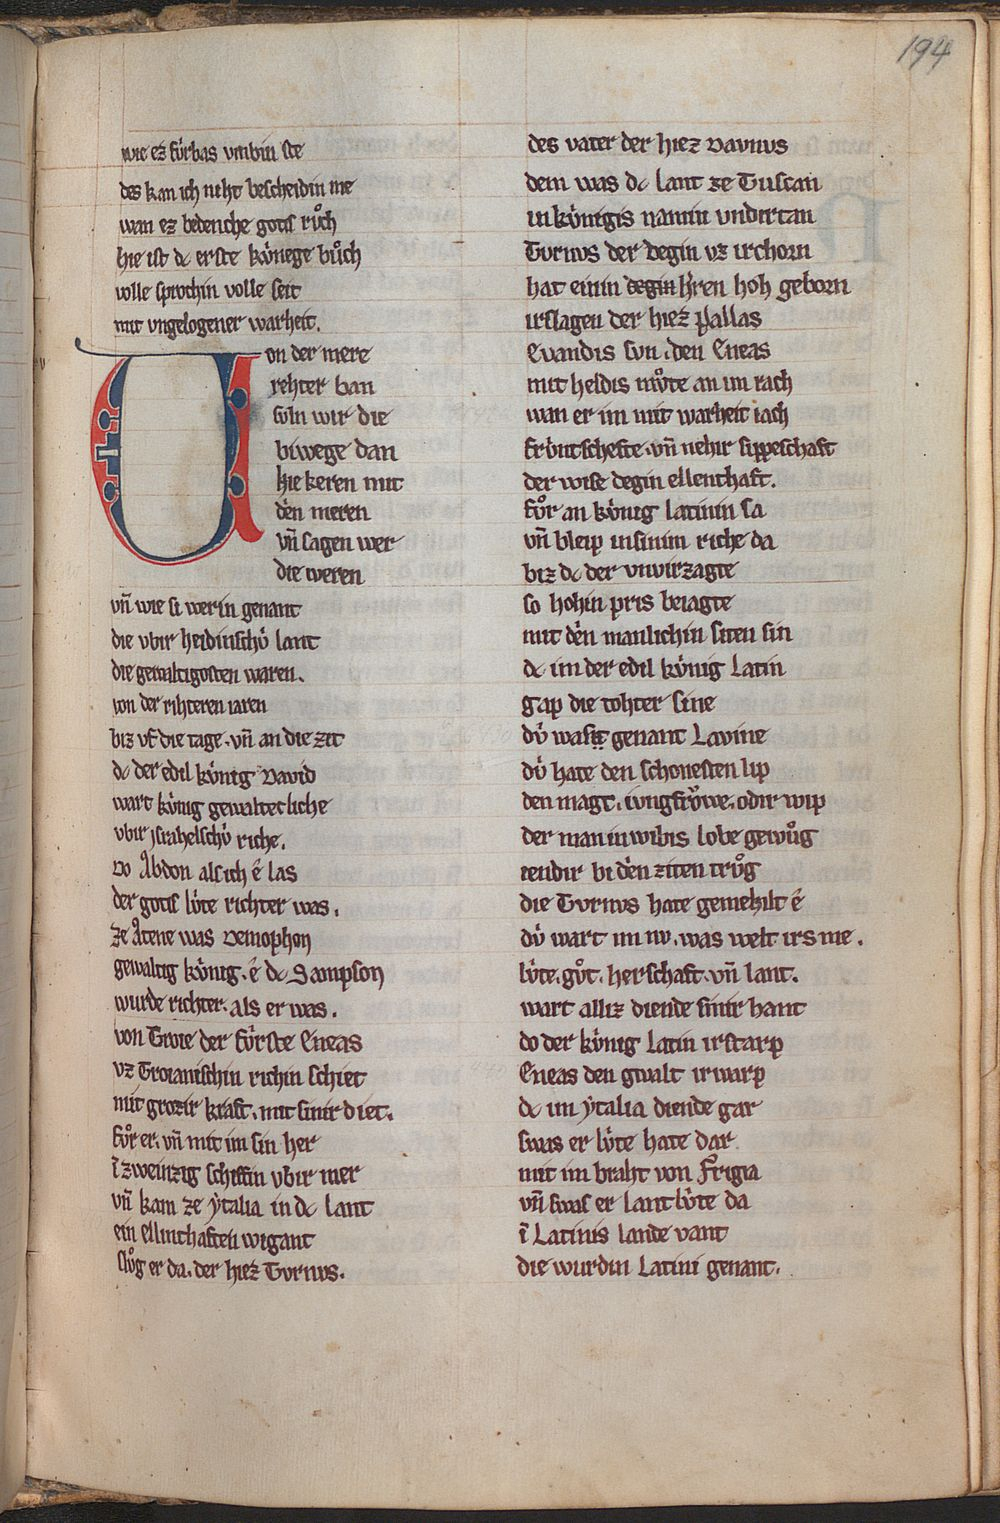 194
wie ez fv́rbas vmbin ste
des kan ich niht bescheidin me
wan ez bedenche gotis rvͦch
hie ist dc erste kv́nege bvͦch
volle sprochin volle seit
mit vngelogener warheit.
Von der mere
rehter ban
svln wir die
biwege dan
hie keren mit
dén meren
vn̄ sagen wer
die weren
vn̄ wie si werin genant
die vbir heidinschv́ lant
die gewaltigosten waren.
von der rihteren iaren
biz vf die tage. vn̄ an die zit
dc der edil kv́nig David
wart kv́nig gewaltecliche
vbir jsrahelschv́ riche.
Do Abdon als ich é las
der gotis lv́te richter was.
ze Atene was Demophon
gewaltig kv́nig. é dc Sampson
wurde richter. als er was.
von Troie der fv́rste Eneas
vz Troianischin richin schiet
mit grozir kraft. mit sinir diet.
fvͦr er. vn̄ mit im sin her
ī zweinzig schiffin vbir mer
vn̄ kam ze ẏtalia in dc lant
ein ellinthaften wigant
slvͦg er da. der hiez Tvrnvs.
des vater der hiez Davnvs
dem was dc lant ze Tuscan
in kv́nigis namin vndirtan
Tvrnvs der degin vz irchorn
hat einin degin h́ren hoh geborn
irslagen der hiez Pallas
Evandis svn. den Eneas
mit heldis mvͦte an im rach
wan er im mit warheit iach
frv́ntschefte. vn̄ nehir sippeschaft
der wise degin ellenthaft.
fvͦr an kv́nig latinin sa
vn̄ bleip in sinim riche da
biz dc der vnvirzagte
so hohin pris beiagte
mit dén manlichin siten sin
dc im der edil kv́nig Latin
gap die tohter sine
dv́ was genant Lavine
dv́ hate den schonesten lip
den magt. ivngfrowe. odir wip
der man in wibis lobe gewvͦg
iendir bi dén ziten trvͦg
die Tvrnvs hate gemehilt é
dv́ wart im nv. was welt irs me.
lv́te. gvͦt. herschaft. vn̄ lant.
wart alliz diende sinir hant
do der kv́nig Latin irstarp
Eneas den gwalt irwarp
dc im ẏtalia diende gar
swas er lv́te hate dar
mit im braht von Frigia
vn̄ swas er lantlv́te da
ī Latinis lande vant
die wurdin Latini genant.